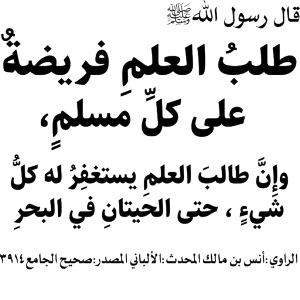 قال رسول الله ﷺ
طلبُ العلمِ فريضةٌ
على كلِّ مسلمٍ،
وإنَّ طالبَ العلمِ يستغفِرُ له كلُّ
شيءٍ ، حتى الحيتانِ في البحرِ
الراوي:أنس بن مالك المحدث:الألباني المصدر:صحيح الجامع ٣٩١٤